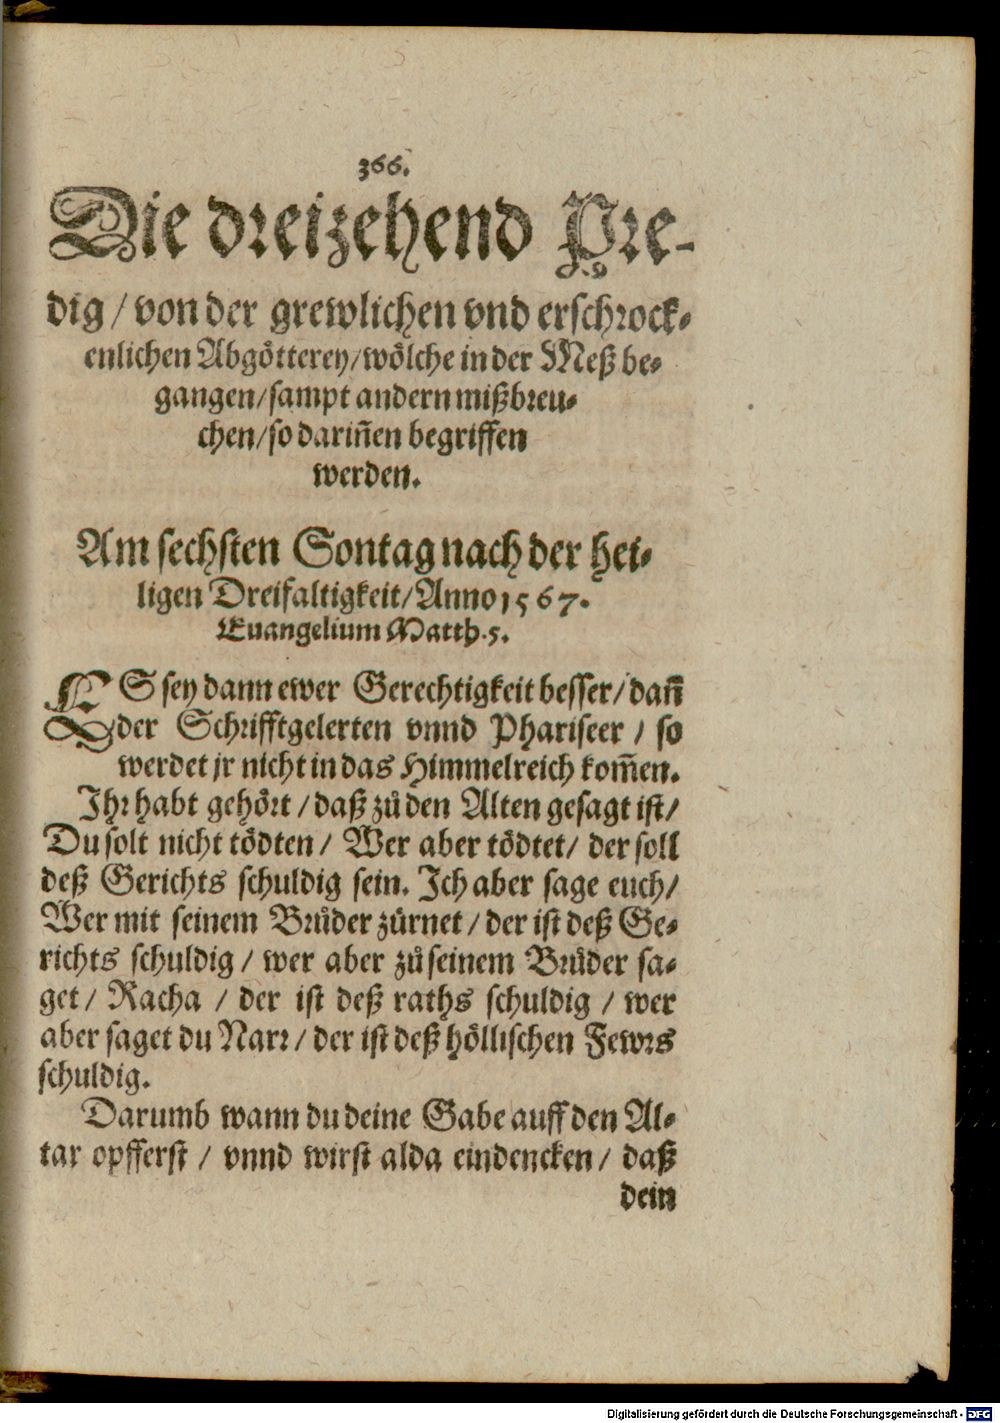 366.
Die dreizehend Pre-
dig / von der grewlichen vnd erschrock-
enlichen Abgötterey / wölche in der Meß be-
gangen / sampt andern mißbreu-
chen / so dariñen begriffen
werden.
Am sechsten Sontag nach der hei-
ligen Dreifaltigkeit / Anno 1567.
Euangelium Matth. 5.
ES sey dann ewer Gerechtigkeit besser / dañ
der Schrifftgelerten vnnd Phariseer / so
werdet jr nicht in das Himmelreich kom̃en.
Ihr habt gehört / daß zů den Alten gesagt ist /
Du solt nicht tödten / Wer aber tödtet / der soll
deß Gerichts schuldig sein. Ich aber sage euch /
Wer mit seinem Brůder zürnet / der ist deß Ge-
richts schuldig / wer aber zů seinem Brůder sa-
get / Racha / der ist deß raths schuldig / wer
aber saget du Narr / der ist deß höllischen Fewrs
schuldig.
Darumb wann du deine Gabe auff den Al-
tar opfferst / vnnd wirst alda eindencken / daß
dein
Digitalisierung gefördert durch die Deutsche Forschungsgemeinschaft - DFG